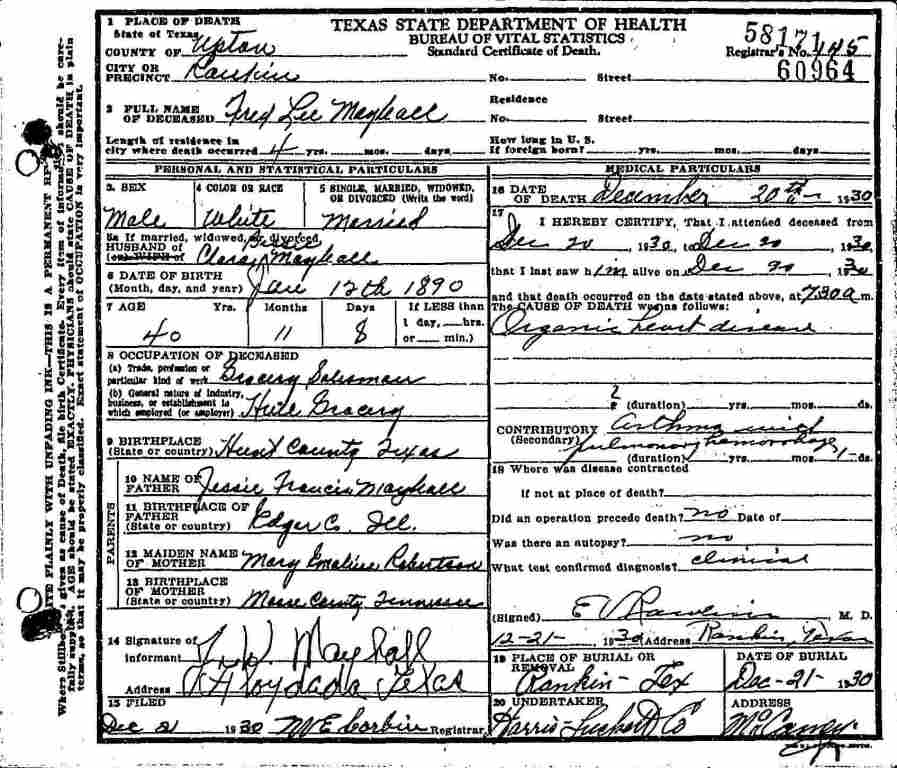 TEXAS STATE DEPARTMENT OF HEALTH
BUREAU OF VITAL STATISTICS
Standard Certificate of Death.
58171
Registrar's No. 445
60964
1 PLACE OF DEATH
State of Texas
COUNTY OF Upton
CITY OR PRECINCT Rankin No. Street
2 FULL NAME OF DECEASED Fred Lee Mayhall
Residence No. Street
Length of residence in city where death occurred 4 yrs. mos. days
How long in U. S. If foreign born? yrs. mos. days
PERSONAL AND STATISTICAL PARTICULARS
3. SEX Male
4 COLOR OR RACE White
5 SINGLE, MARRIED, WIDOWED, OR DIVORCED (Write the word) Married
5a If married, widowed, or divorced
HUSBAND OF (or) WIFE OF Clara Bessie Mayhall
6 DATE OF BIRTH (Month, day, and year) Jan 12th 1890
7 AGE Yrs. 40 Months 11 Days 8 If LESS than 1 day, hrs. or min.)
8 OCCUPATION OF DECEASED
(a) Trade, profession or particular kind of work Grocery Salesman
(b) General nature of industry, business, or establishment in which employed (or employer) Grocery
9 BIRTHPLACE (State or country) Hunt County Texas
PARENTS
10 NAME OF FATHER Jessie Francis Mayhall
11 BIRTHPLACE OF FATHER (State or country) Edger C. Ill.
12 MAIDEN NAME OF MOTHER Mary Emaline Robertson
13 BIRTHPLACE OF MOTHER (State or country) Moore County Tennessee
14 Signature of Informant Mayhall
Address Floydada Texas
15 FILED Dec 21 1930 M E Corbin Registrar
MEDICAL PARTICULARS
16 DATE OF DEATH December 20th 1930
17 I HEREBY CERTIFY, That I attended deceased from
Dec 20 1930, to Dec 20 1930
that I last saw him alive on Dec 20 1930
and that death occurred on the date stated above, at 7:30 a m.
The CAUSE OF DEATH was as follows:
Organic heart disease
? (duration) yrs. mos. ds.
CONTRIBUTORY (Secondary) Asthma and pulmonary hemorrhage
(duration) yrs. mos. 1 ds.
18 Where was disease contracted
If not at place of death?
Did an operation precede death? no Date of
Was there an autopsy? no
What test confirmed diagnosis? clinical
(Signed) E V Rawlins M. D.
12-21- 1930 Address Rankin, Texas
19 PLACE OF BURIAL OR REMOVAL Rankin - Tex
DATE OF BURIAL Dec-21- 1930
20 UNDERTAKER Harris-Luckett Co
ADDRESS McCamey
WRITE PLAINLY WITH UNFADING INK—THIS IS A PERMANENT